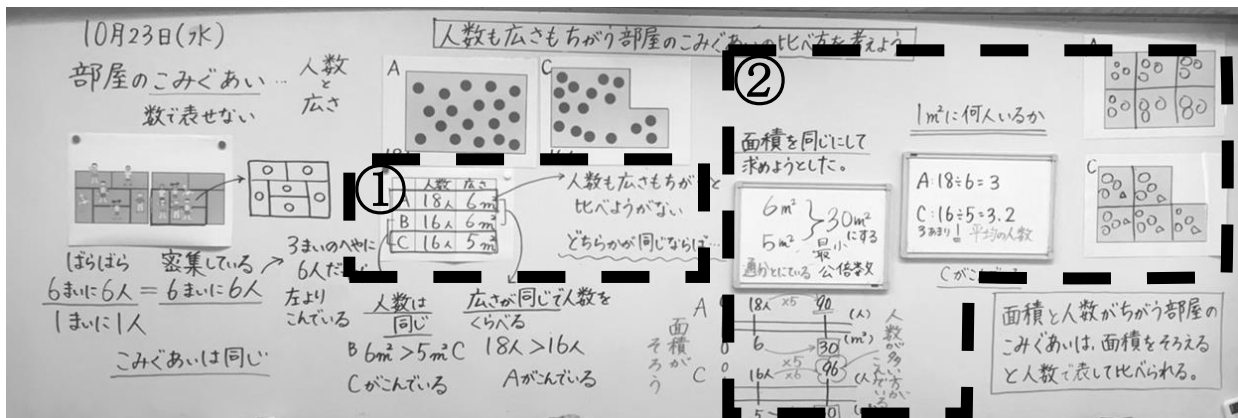 10月23日(水)
人数も広さもちがう部屋のこみぐあいの比べ方を考えよう
部屋のこみぐあい…
人数
と
広さ
数で表せない
ばらばら
密集している
6まいに6人=6まいに6人
1まいに1人
こみぐあいは同じ
3まいのへやに
左より
こんでいる
A
C
①
人数 広さ
A 18人 6m²
B 16人 6m²
C 16人 5m²
比べようがない
どちらかが同じならば…
人数は
同じ
B 6m²>5m² C
Cがこんでいる
広さが同じで人数を
くらべる
18人>16人
Aがこんでいる
②
面積を同じにして
求めようとした。
6m²
5m²
30m²
にする
最小
公倍数
1m²に何人いるか
A:18÷6=3
C:16÷5=3.2
3あまり! 平均の人数
C
面積が
そろう
A
18人 ×5 90 (人)
6 30 (m²)
C
16人 ×5 ×6 96
5
人数が多い方が
面積と人数がちがう部屋の
こみぐあいは、面積をそろえる
と人数で表して比べられる。